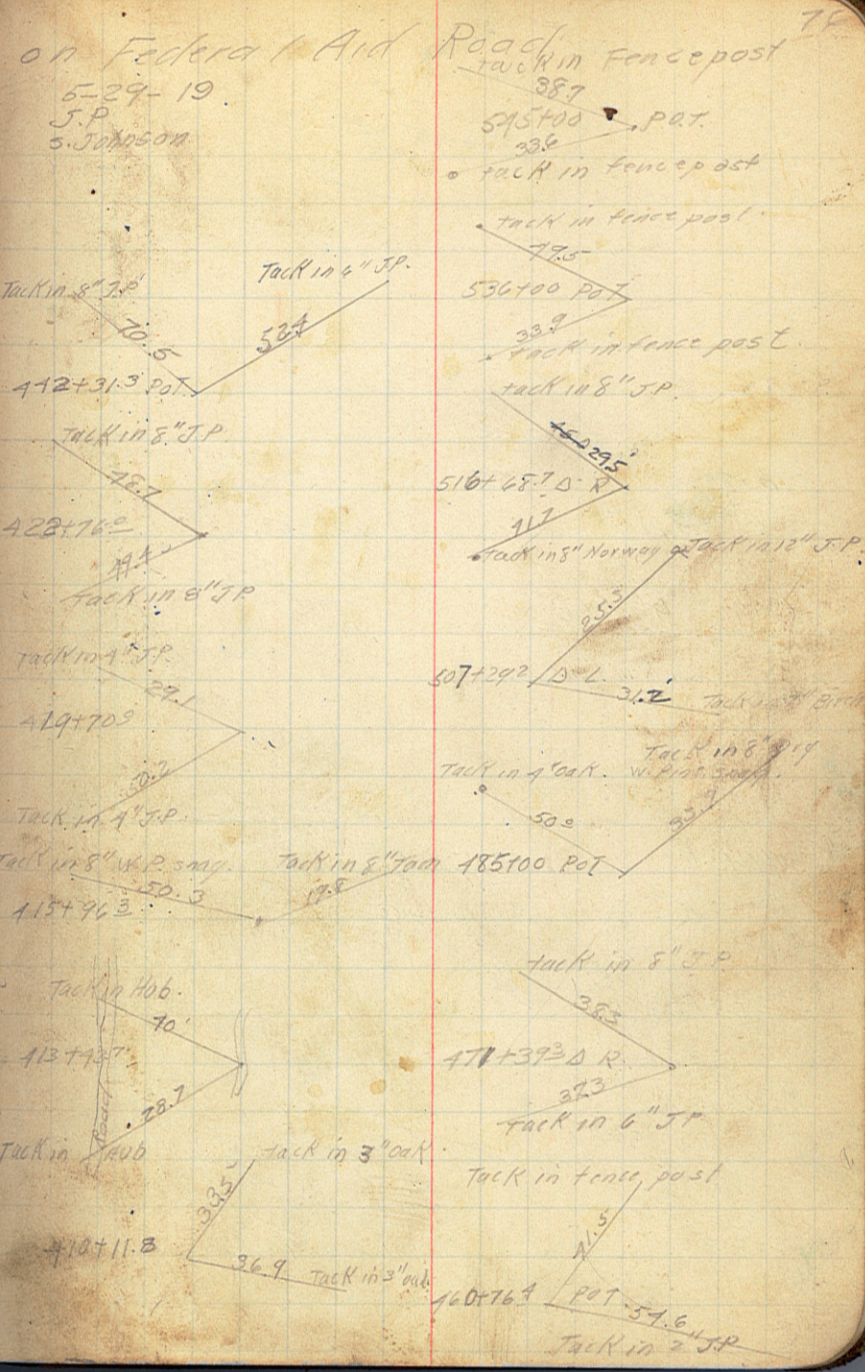 on Federal Aid Road
5-29-19
J.P
S. Johnson
Tack in 8" J.P
Tack in 6" J.P.
70.5
524
442+31.3 POT.
Tack in 8" J.P.
78.7
422+76⁰
Tack in 8" J.P
Tack in 4" J.P.
29.1
419+70⁰
50.2
Tack in 4" J.P.
Tack in 8" W.P. snag.
Tack in 8"
50.3
19.8
415+96³
Tack in Hub.
70'
413+
28.7
Road
Tack in Hub
tack in 3" oak.
33.5'
410+11.8
36.9
Tack in 3" oak
tack in Fence post
38.7
545+00 P.O.T.
33.6
tack in fence post
tack in fence post.
79.5
536+00 POT
33.9
tack in fence post.
tack in 8" J.P.
29.5'
516+68.7 Δ R
41.7
Tack in 8" Norway
Tack in 12" J.P.
25.3
507+29² Δ L.
31.2'
Tack in Birch
Tack in 8" Dry
W. Pine snag.
Tack in 4" oak.
50⁰
485+00 POT
tack in 8" J.P.
38.3
471+39³ Δ R.
37.3
tack in 6" J.P.
Tack in fence post
41.5
460+76⁴ POT
54.6
Tack in 2" J.P